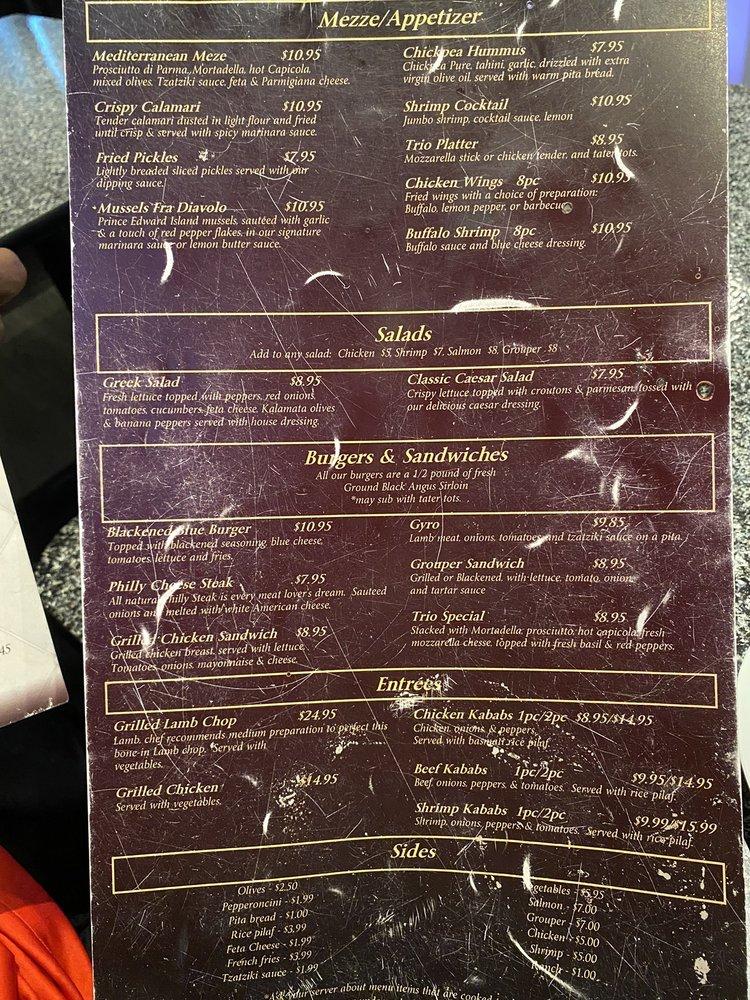 Mezze/Appetizer
Mediterranean Meze $10.95
Prosciutto di Parma, Mortadella, hot Capicola,
mixed olives, Tzatziki sauce, feta & Parmigiana cheese.
Crispy Calamari $10.95
Tender calamari dusted in light flour and fried
until crisp & served with spicy marinara sauce.
Fried Pickles $7.95
Lightly breaded sliced pickles served with our
dipping sauce.
Mussels Fra Diavolo $10.95
Prince Edward Island mussels, sautéed with garlic
& a touch of red pepper flakes, in our signature
marinara sauce or lemon butter sauce.
Chickpea Hummus $7.95
Chickpea Pure, tahini, garlic, drizzled with extra
virgin olive oil, served with warm pita bread.
Shrimp Cocktail $10.95
Jumbo shrimp, cocktail sauce, lemon
Trio Platter $8.95
Mozzarella stick or chicken tender, and tater tots.
Chicken Wings 8pc $10.95
Fried wings with a choice of preparation:
Buffalo, lemon pepper, or barbecue
Buffalo Shrimp 8pc $10.95
Buffalo sauce and blue cheese dressing.
Salads
Add to any salad: Chicken $5, Shrimp $7, Salmon $8, Grouper $8
Greek Salad $8.95
Fresh lettuce topped with peppers, red onions,
tomatoes, cucumbers, feta cheese, Kalamata olives
& banana peppers served with house dressing.
Classic Caesar Salad $7.95
Crispy lettuce topped with croutons & parmesan, tossed with
our delicious caesar dressing.
Burgers & Sandwiches
All our burgers are a 1/2 pound of fresh
Ground Black Angus Sirloin
*may sub with tater tots.
Blackened Blue Burger $10.95
Topped with blackened seasoning, blue cheese,
tomatoes, lettuce and fries.
Philly Cheese Steak $7.95
All natural Philly Steak is every meat lover's dream. Sauteed
onions and melted with white American cheese.
Grilled Chicken Sandwich $8.95
Grilled chicken breast, served with lettuce,
Tomatoes, onions, mayonnaise & cheese.
Gyro $9.85
Lamb meat, onions, tomatoes, and tzatziki sauce on a pita.
Grouper Sandwich $8.95
Grilled or Blackened, with lettuce, tomato, onion,
and tartar sauce
Trio Special $8.95
Stacked with Mortadella, prosciutto, hot capicola, fresh
mozzarella chesse, topped with fresh basil & red peppers.
Entrées
Grilled Lamb Chop $24.95
Lamb, chef recommends medium preparation to perfect this
bone-in Lamb chop. Served with
vegetables.
Grilled Chicken $14.95
Served with vegetables.
Chicken Kababs 1pc/2pc $8.95/$14.95
Chicken, onions, & peppers,
Served with basmati rice pilaf.
Beef Kababs 1pc/2pc $9.95/$14.95
Beef, onions, peppers, & tomatoes. Served with rice pilaf.
Shrimp Kababs 1pc/2pc $9.99/$15.99
Shrimp, onions, peppers & tomatoes. Served with rice pilaf.
Sides
Olives - $2.50
Pepperoncini - $1.99
Pita bread - $1.00
Rice pilaf - $3.99
Feta Cheese - $1.99
French fries - $3.99
Tzatziki sauce - $1.99
Vegetables - $5.95
Salmon - $7.00
Grouper - $7.00
Chicken - $5.00
Shrimp - $5.00
Ranch - $1.00
your server about menu items that are cooked
45